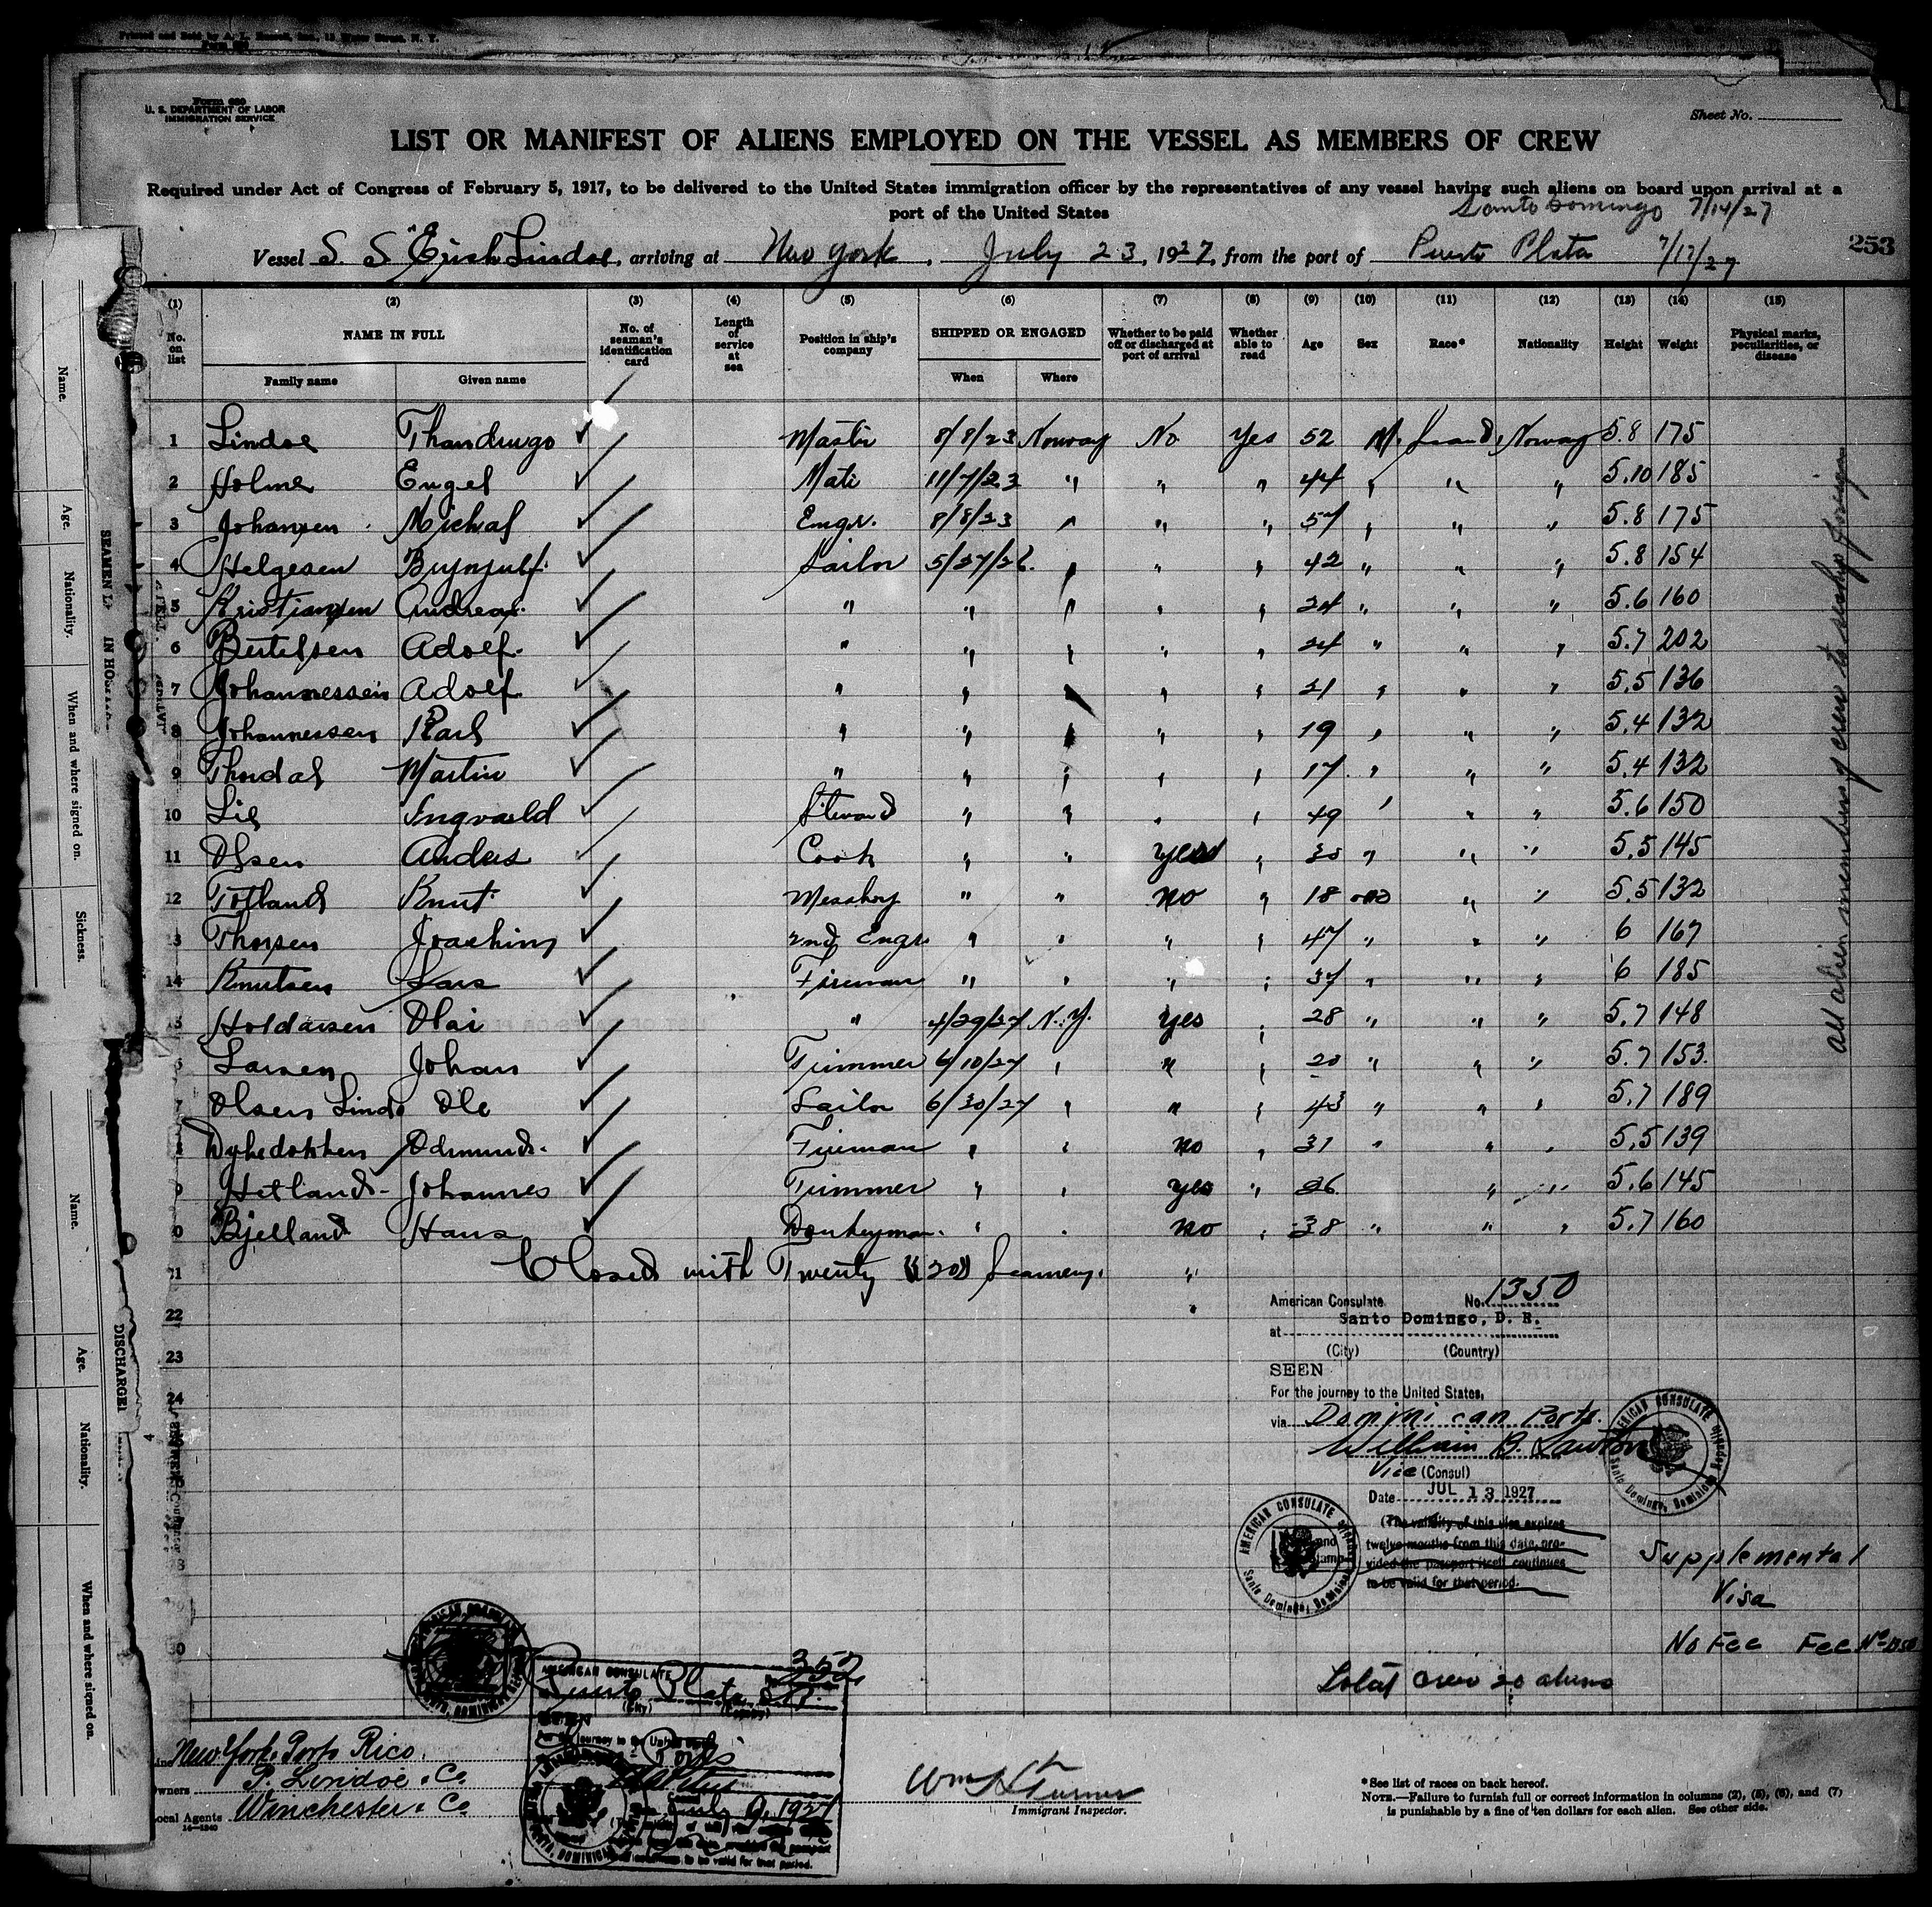 Printed and Sold by
Form 680
U. S. DEPARTMENT OF LABOR
IMMIGRATION SERVICE
Sheet No.
LIST OR MANIFEST OF ALIENS EMPLOYED ON THE VESSEL AS MEMBERS OF CREW
Required under Act of Congress of February 5, 1917, to be delivered to the United States immigration officer by the representatives of any vessel having such aliens on board upon arrival at a
port of the United States
Santo Domingo 7/14/27
Vessel S. S. "Erich Lindoe, arriving at New York, July 23, 1927, from the port of Puerto Plata 7/17/27
253
(1) (2) (3) (4) (5) (6) (7) (8) (9) (10) (11) (12) (13) (14) (15)
No. on list NAME IN FULL Family name Given name No. of seaman's identification card Length of service at sea Position in ship's company SHIPPED OR ENGAGED When Where Whether to be paid off or discharged at port of arrival Whether able to read Age Sex Race* Nationality Height Weight Physical marks, peculiarities, or disease
1 Lindoe Master 8/8/23 Norway No Yes 52 M. Scand. Norway 5.8 175
2 Holme Engel Mate 11/7/23 " " " 44 " " " 5.10 185
3 Johansen Michal Engr. 8/8/23 " " " 57 " " " 5.8 175
4 Helgesen Sailor 5/27/26 " " " 42 " " " 5.8 154
5 Kristiansen Andreas " " " " " 24 " " " 5.6 160
6 Bertelsen Adolf " " " " " 24 " " " 5.7 202
7 Johannessen Adolf " " " " " 21 " " " 5.5 136
8 Johannessen Karl " " " " " 19 " " " 5.4 132
9 Thordal Martin " " " " " 17 " " " 5.4 132
10 Lie Ingvald Steward " " " " 49 " " " 5.6 150
11 Olsen Anders Cook " " yes " 30 " " " 5.5 145
12 Totland Knut Messboy " " no " 18 " " 5.5 132
13 Thorsen Joachim 2nd Engr " " " " 47 " " " 6 167
14 Knutsen Lars Fireman " " " " 37 " " " 6 185
15 Holdarsen Olai " 4/29/27 N.Y. Yes " 28 " " " 5.7 148
16 Larsen Johan Trimmer 6/10/27 " " " 20 " " " 5.7 153.
17 Olsen Lindo Ole Sailor 6/30/27 " " " 43 " " " 5.7 189
18 Odmund. Fireman " " no " 31 " " " 5.5 139
19 Hetland Johannes Trimmer " " yes " 26 " " 5.6 145
20 Bjelland Hans Donkeyman. " " no " 38 " " " 5.7 160
21 Closed with Twenty (20) Seamen. "
22 "
23
24
30
all alien members of crew to reship foreign
American Consulate No. 1350
at Santo Domingo, D. R.
(City) (Country)
SEEN
For the journey to the United States,
via Dominican Ports.
William B. Lawton
Vice (Consul)
Date JUL 13 1927
(The validity of this visa expires
twelve months from this date, pro-
vided the passport itself continues
to be valid for that period.
AMERICAN CONSULATE
Santo Domingo, Dominican Republic
AMERICAN CONSULATE
Santo Domingo, Dominican
Supplemental
Visa
No Fee Fee No
Total crew 20 aliens
AMERICAN CONSULATE
Puerto Plata, D.R.
(City) (Country)
SEEN
For the journey to the United States
July 9, 1927
Line New York Porto Rico
Owners P. Lindoe & Co.
Local Agents Winchester & Co
14—1240
Immigrant Inspector.
*See list of races on back hereof.
NOTE.—Failure to furnish full or correct information in columns (2), (5), (6), and (7)
is punishable by a fine of ten dollars for each alien. See other side.
Name.
Age.
Nationality.
When and where signed on.
Sickness.
Name.
Age.
Nationality.
When and where signed on.